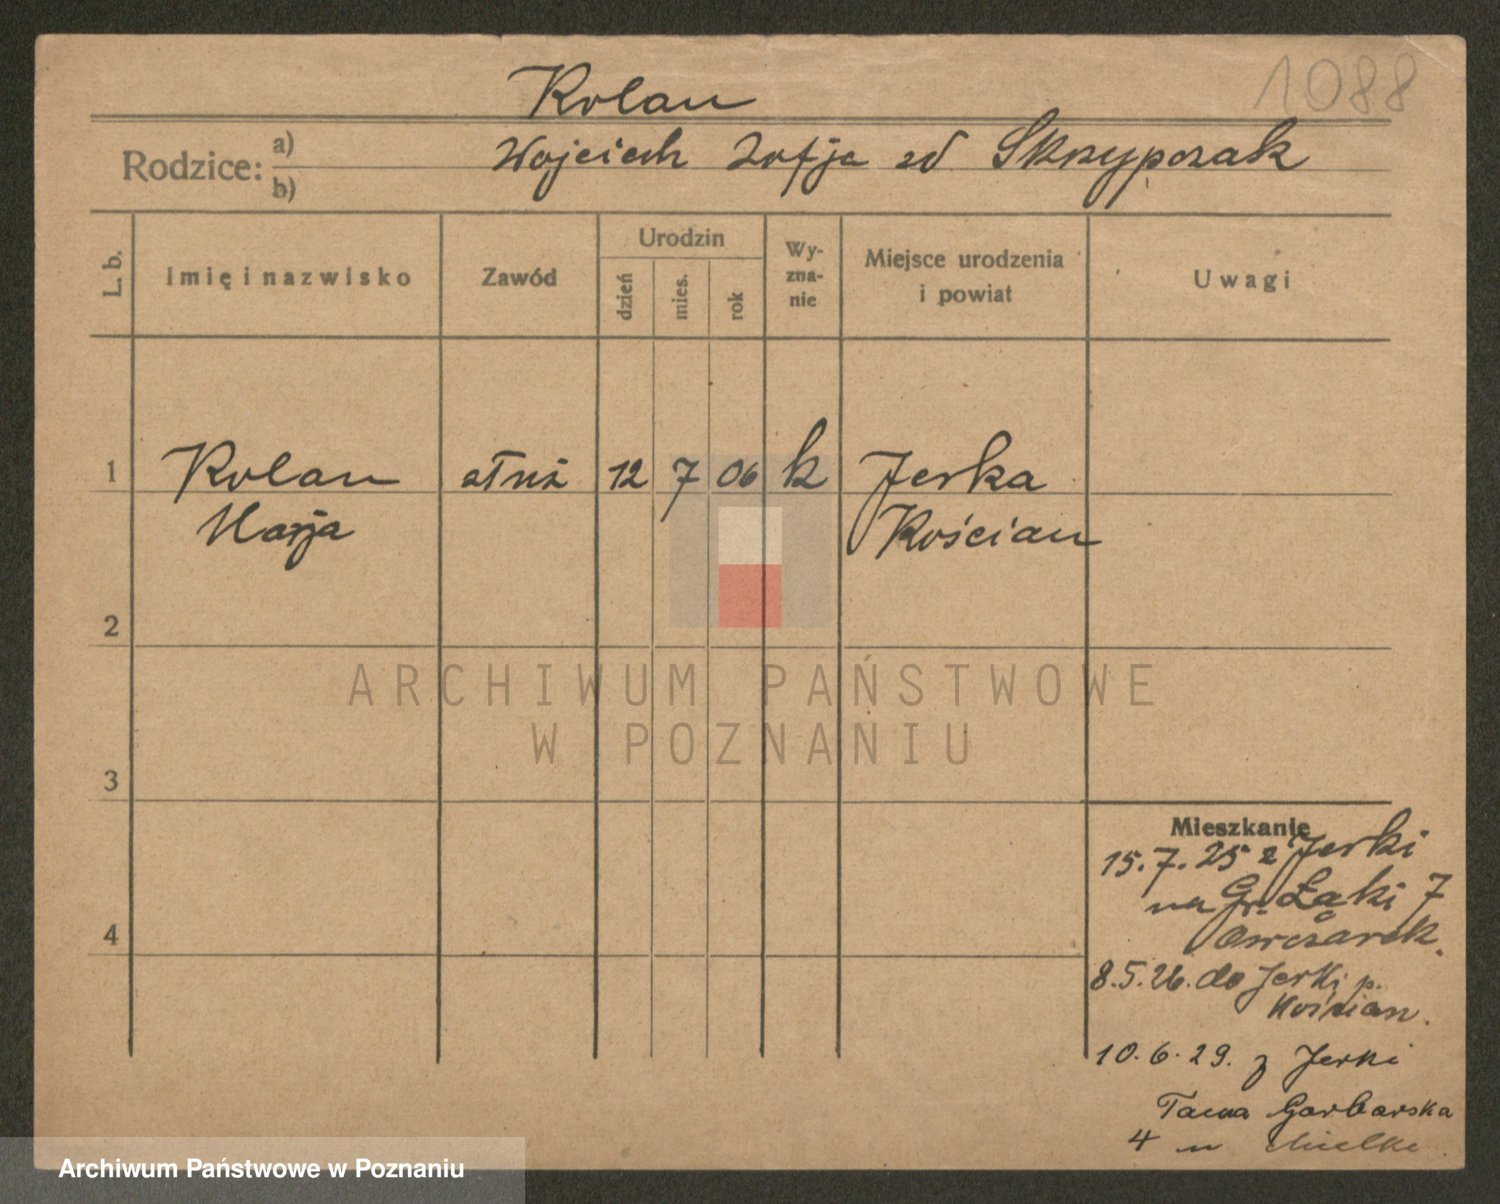 1088
Kolan
Rodzice: a) Wojciech Zofja zd Skrzypczak
b)
L. b. Imię i nazwisko Zawód Urodzin dzień mies. rok Wyznanie Miejsce urodzenia i powiat Uwagi
1 Kolan służ 12 7 06 k Jerka
Marja Kościan
2
3
4
Mieszkanie
15.7.25 z Jerki
na Gr. Łąki 7
Owczarek.
8.5.26. do Jerki p.
Kościan.
10.6.29. z Jerki
Tama Garbarska
4 u Mielke.
ARCHIWUM PAŃSTWOWE
W POZNANIU
Archiwum Państwowe w Poznaniu